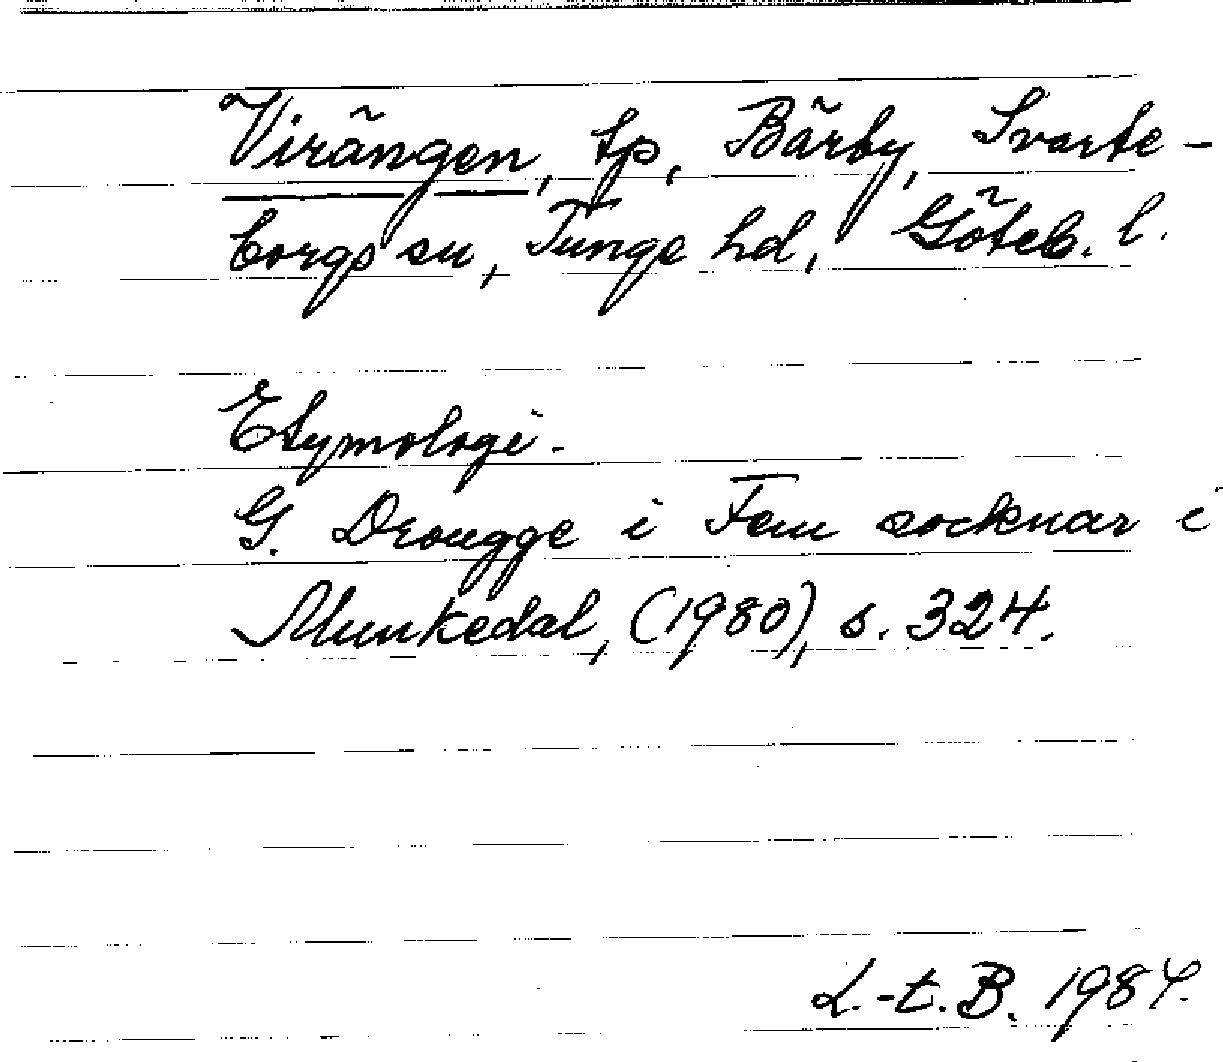 Virängen, tp, Bärby, Svarte-
borgs sn, Tunge hd, Göteb. l.
Etymologi.
G. Drougge i Fem socknar i
Munkedal, (1980), s. 324.
L.-t. B. 1984.